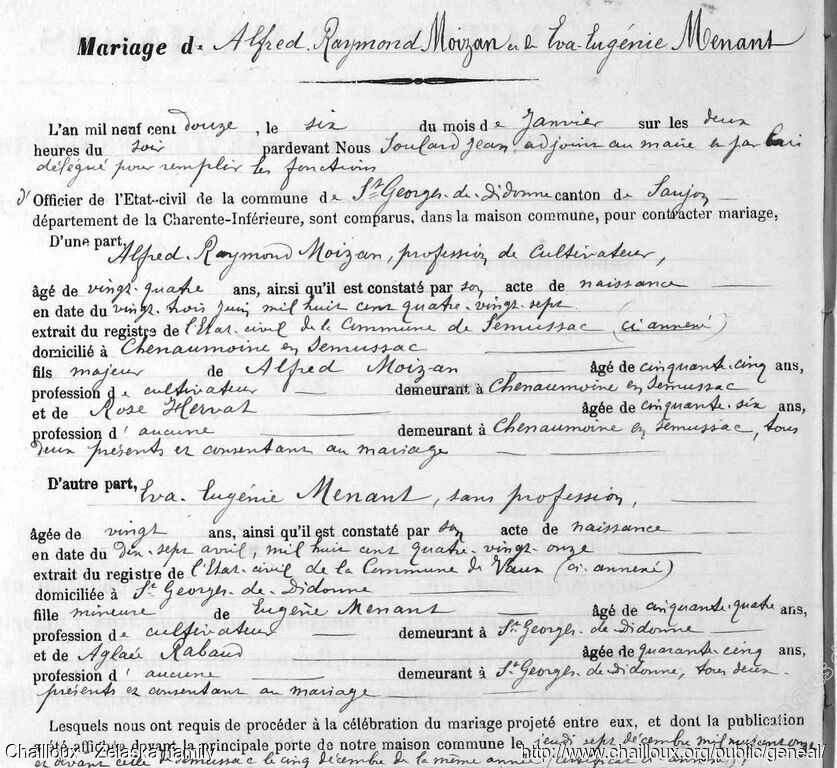 Mariage de Alfred Raymond Moizan et de Eva Eugénie Menant
L'an mil neuf cent Douze, le six du mois de Janvier sur les deux
heures du soir pardevant Nous Soulard Jean, adjoint au maire et par lui
délégué pour remplir les fonctions
d' Officier de l'Etat-civil de la commune de St Georges-de-Didonne canton de Saujon
département de la Charente-Inférieure, sont comparus, dans la maison commune, pour contracter mariage,
D'une part, Alfred Raymond Moizan, profession de cultivateur,
âgé de vingt-quatre ans, ainsi qu'il est constaté par son acte de naissance
en date du vingt-trois Juin mil huit cent quatre-vingt-sept
extrait du registre de l'Etat-civil de la Commune de Semussac (ci annexé)
domicilié à Chenaumoine en Semussac
fils majeur de Alfred Moizan âgé de cinquante-cinq ans,
profession de cultivateur demeurant à Chenaumoine en Semussac
et de Rose Hervat âgée de cinquante-six ans,
profession d' aucune demeurant à Chenaumoine en Semussac, tous
deux présents et consentant au mariage
D'autre part, Eva Eugénie Menant, sans profession,
âgée de vingt ans, ainsi qu'il est constaté par son acte de naissance
en date du dix-sept avril, mil huit cent quatre-vingt-onze
extrait du registre de l'Etat-civil de la Commune de Vaux (ci-annexé)
domiciliée à St Georges-de-Didonne
fille mineure de Eugène Menant âgé de cinquante-quatre ans,
profession de cultivateur demeurant à St Georges-de-Didonne
et de Aglaé Rabaud âgée de quarante-cinq ans,
profession d' aucune demeurant à St Georges-de-Didonne, tous deux
présents et consentant au mariage
Lesquels nous ont requis de procéder à la célébration du mariage projeté entre eux, et dont la publication
a été affichée devant la principale porte de notre maison commune le jeudi sept décembre mil neuf cent onze
et devant celle de Semussac le cinq décembre de la même année
Chailloux - Zelaska family
http://www.chailloux.org/public/geneal/